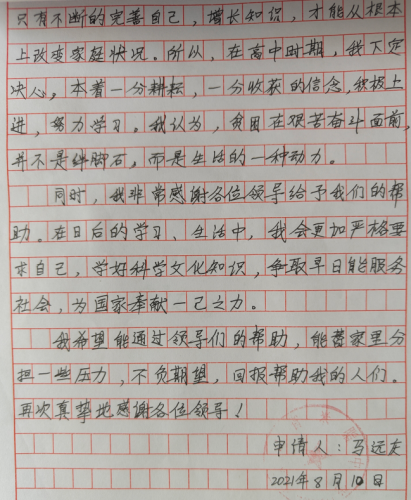 只有不断的完善自己，增长知识，才能从根本
上改变家庭状况。所以，在高中时期，我下定
决心，本着一分耕耘，一分收获的信念，积极上
进，努力学习。我认为，贫困在艰苦奋斗面前，
并不是绊脚石，而是生活的一种动力。
同时，我非常感谢各位领导给予我们的帮
助。在日后的学习、生活中，我会更加严格要
求自己，学好科学文化知识，争取早日能服务
社会，为国家奉献一己之力。
我希望能通过领导们的帮助，能替家里分
担一些压力，不负期望，回报帮助我的人们。
再次真挚地感谢各位领导！
申请人：马远友
2021年8月10日